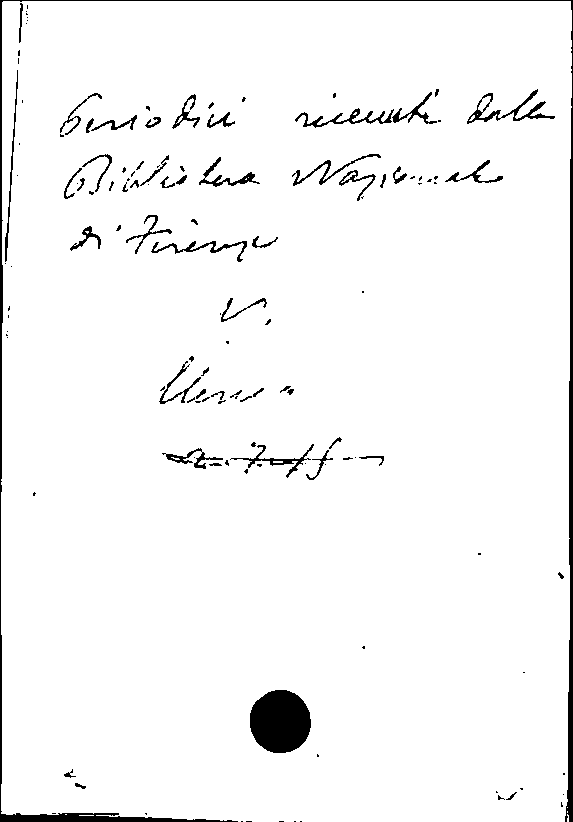 Periodici ricevuti dalla
Biblioteca Nazionale
di Firenze
V.
Elenco